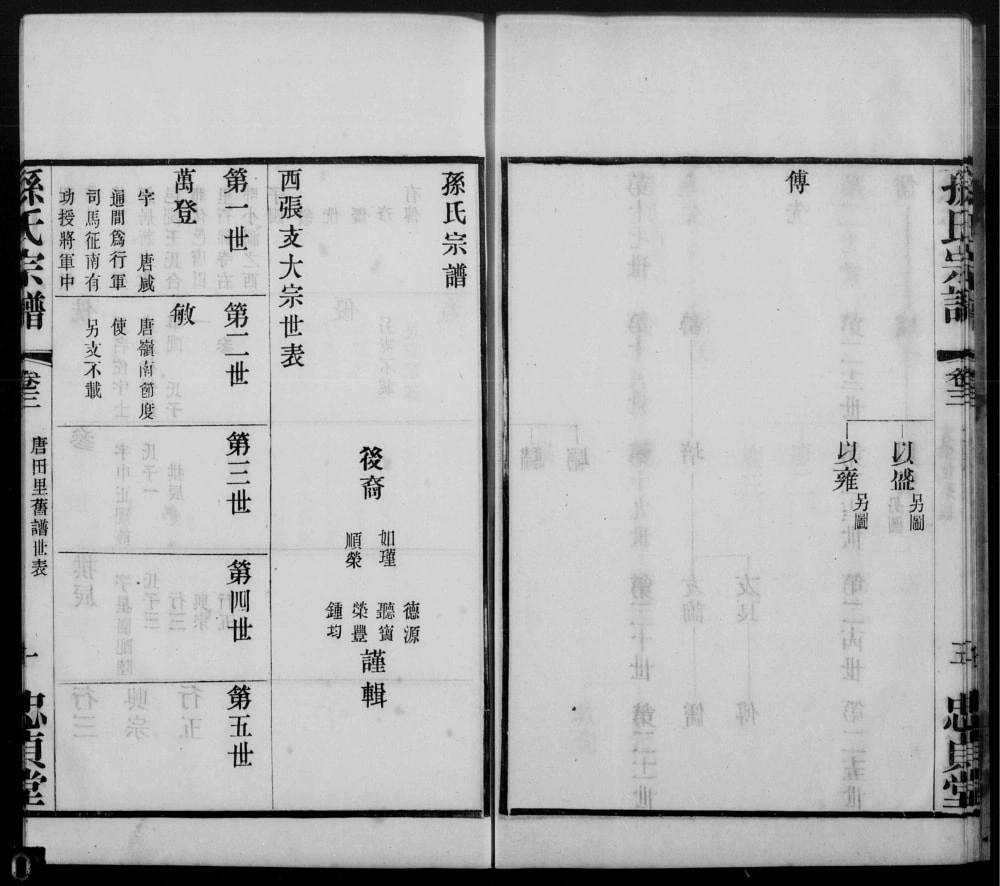 孫氏宗譜
卷三
五
忠貞堂
以盛 另圖
以雍 另圖
傅
孫氏宗譜
後裔
如瑾
順榮
德源
聽寶
榮豐
鍾均
謹輯
西張支大宗世表
第一世
第二世
第三世
第四世
第五世
萬登
字 唐咸
通間爲行軍
司馬征南有
功授將軍中
敏
唐嶺南節度
使
另支不載
孫氏宗譜
卷三
唐田里舊譜世表
十
忠貞堂